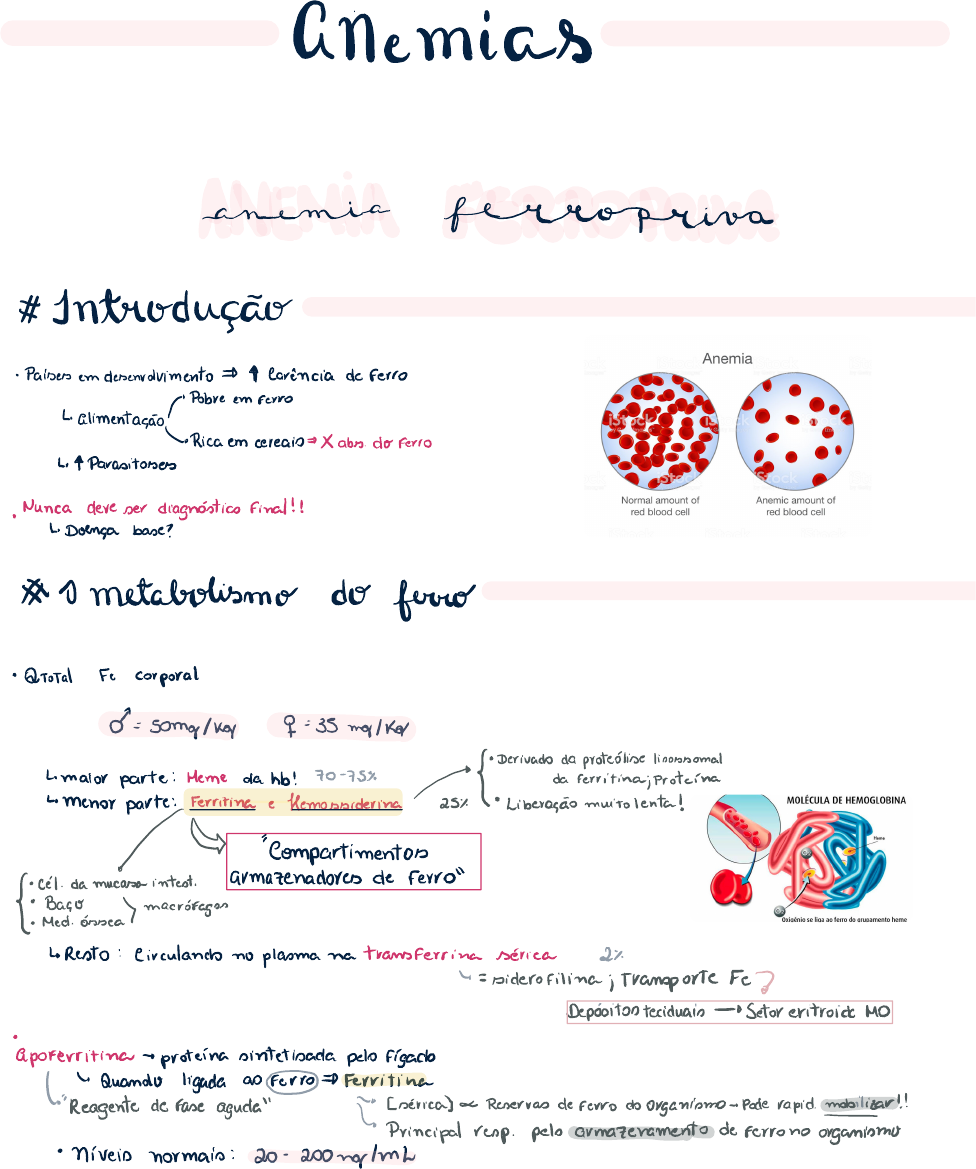 Anemias
anemia ferropriva
# Introdução
· Países em desenvolvimento ⇒ ↑ Carência de Ferro
↳ Alimentação
· Pobre em Ferro
· Rica em cereais ⇒ X abs do Ferro
↳ ↑ Parasitoses
· Nunca deve ser diagnóstico final!!
↳ Doença base?
Anemia
iStock
iStock
Normal amount of
red blood cell
Anemic amount of
red blood cell
# O metabolismo do ferro
· QTOTAL Fe corporal
♂ = 50mg/Kg ♀ = 35 mg/Kg
↳ maior parte: Heme da hb! 70-75%
↳ menor parte: Ferritina e Hemossiderina 25%
· Derivado da proteólise lisossomal
da ferritina; Proteína
· Liberação muito lenta!
"Compartimentos
armazenadores de Ferro"
· Cél. da mucosa intest.
· Baço
· Med. óssea
macrófagos
MOLÉCULA DE HEMOGLOBINA
Heme
Oxigênio se liga ao ferro do grupamento heme
↳ Resto: Circulando no plasma na transferrina sérica 2%
↳ = siderofilina; Transporte Fe
Depósitos teciduais → Setor eritroide MO
· Apoferritina → proteína sintetisada pelo fígado
↳ Quando ligada ao Ferro ⇒ Ferritina
↳ "Reagente de Fase aguda"
↳ [sérica] ∝ Reservas de Ferro do organismo → Pode rapid. mobilizar!!
↳ Principal resp. pelo armazenamento de Ferro no organismo
· Níveis normais: 20 - 200 ng/mL